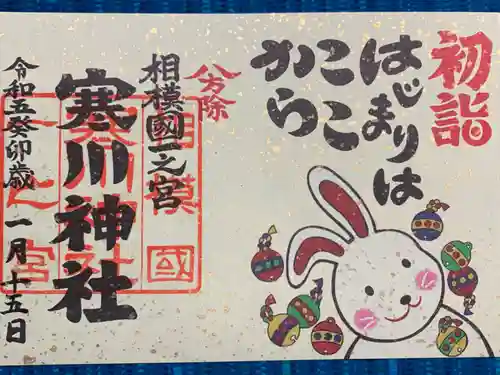 初詣
はじまりは
ここ
から
八方除
相模國一之宮
寒川神社
令和五癸卯歳 一月十五日
相模國